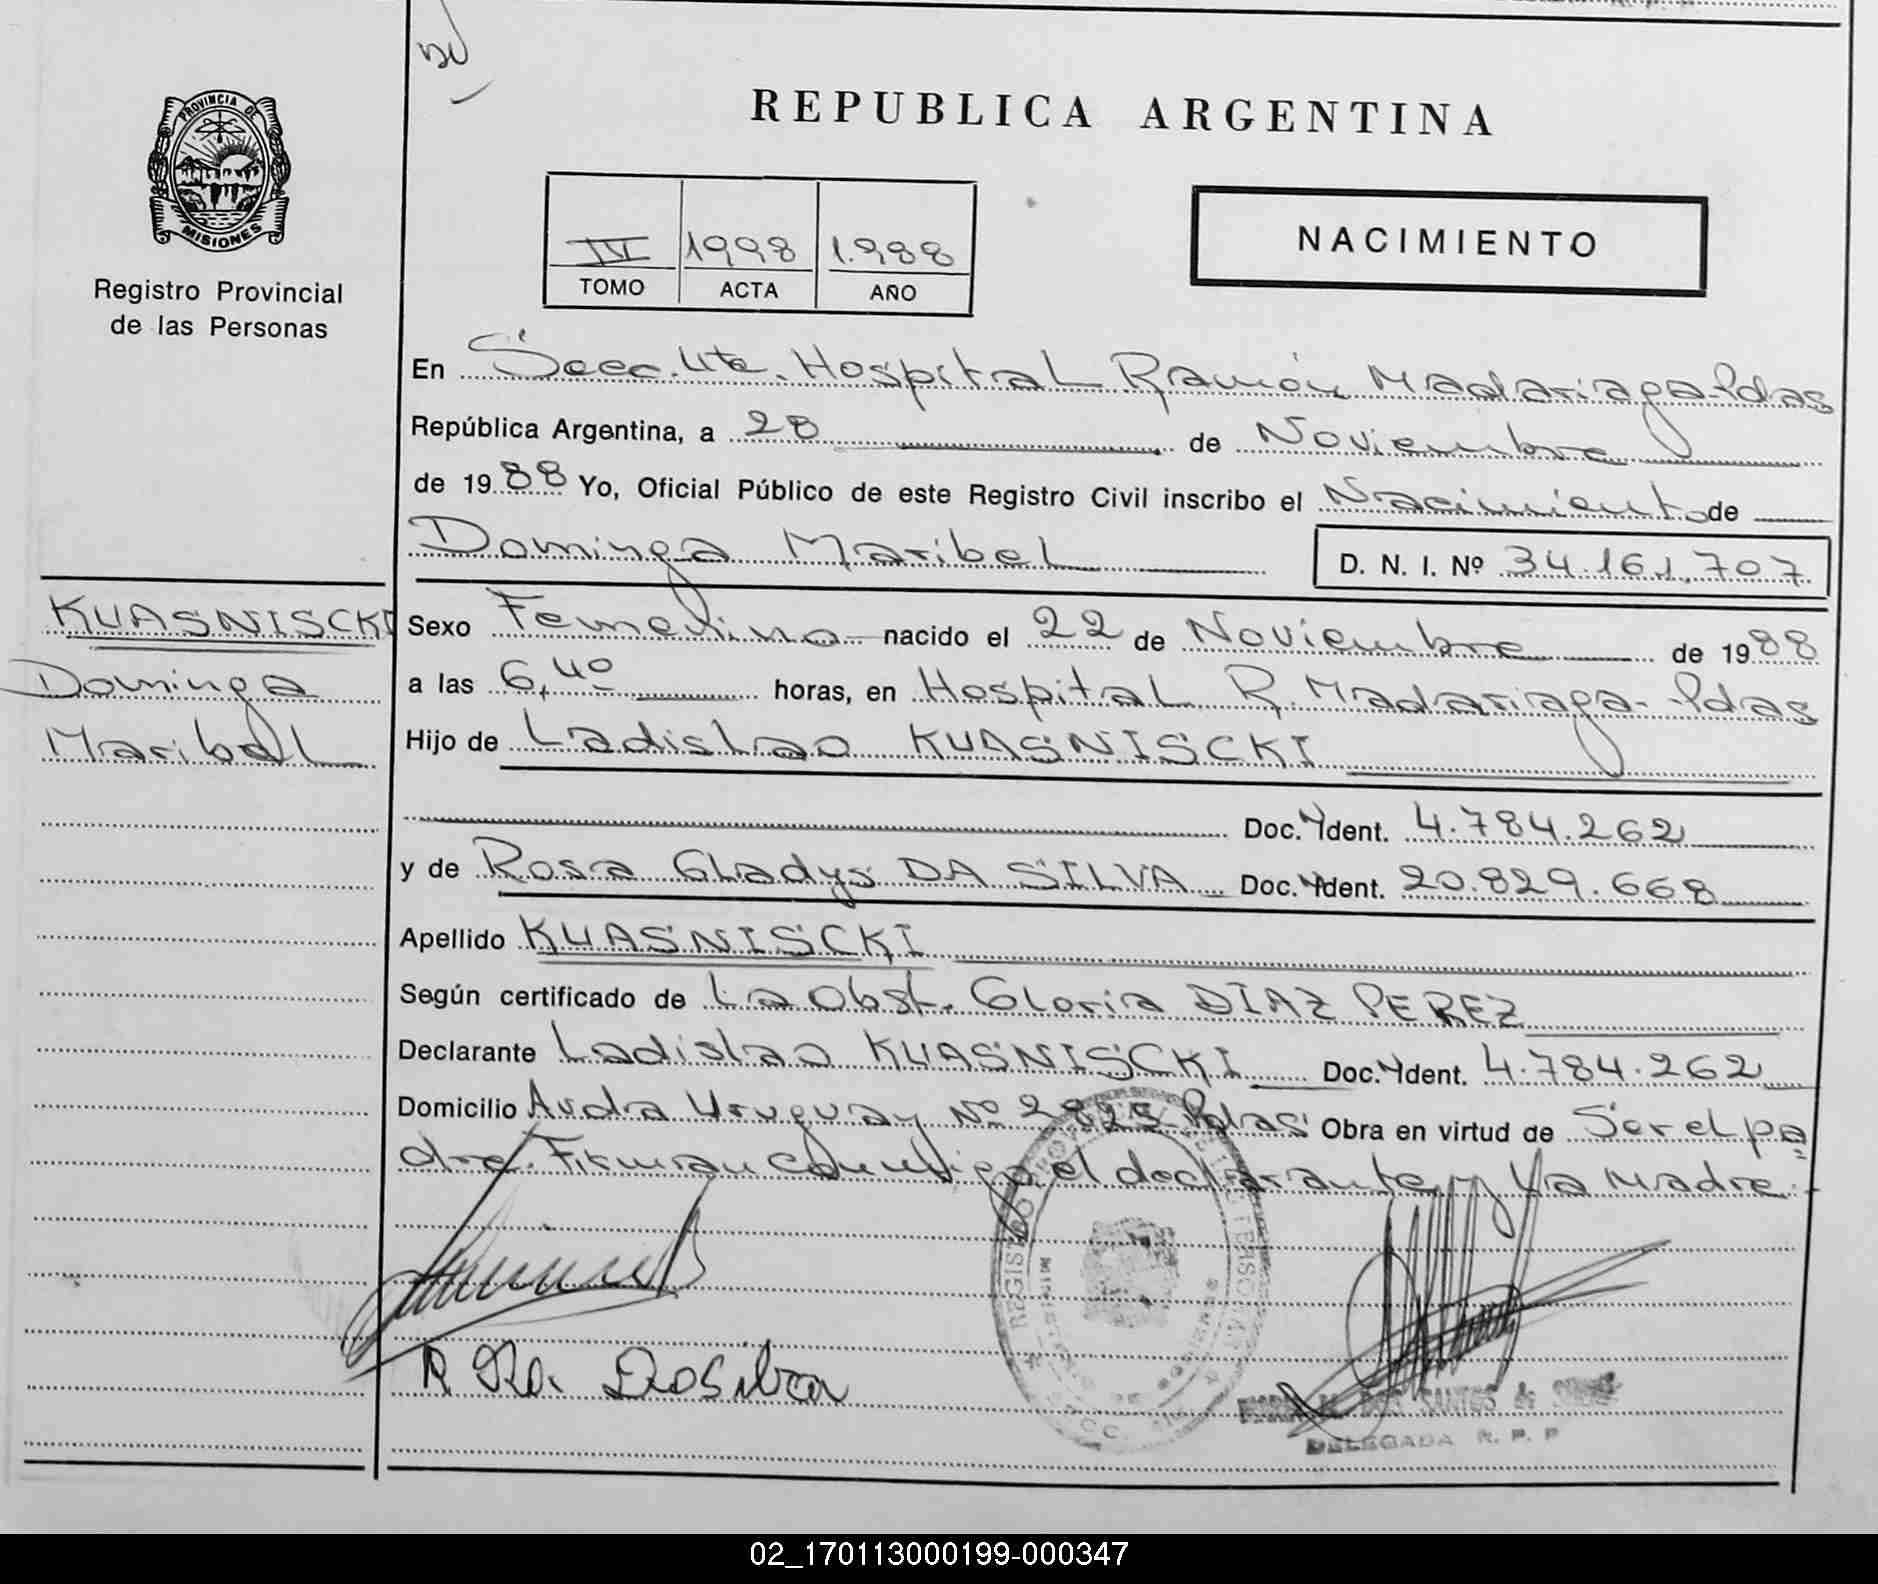 REPUBLICA ARGENTINA
PROVINCIA DE
MISIONES
Registro Provincial
de las Personas
IV 1998 1.988
TOMO ACTA AÑO
NACIMIENTO
En Secc. 4ta. Hospital Ramón Madariaga-Pdas
República Argentina, a 28 de Noviembre
de 1988 Yo, Oficial Público de este Registro Civil inscribo el Nacimiento de
Dominga Maribel D. N. I. Nº 34.161.707
KUASNISCKI
Dominga
Maribel
Sexo Femenino nacido el 22 de Noviembre de 1988
a las 6,40 horas, en Hospital R. Madariaga-Pdas
Hijo de Ladislao KUASNISCKI
Doc. Ident. 4.784.262
y de Rosa Gladys DA SILVA Doc. Ident. 20.829.668
Apellido KUASNISCKI
Según certificado de La Obst. Gloria DIAZ PEREZ
Declarante Ladislao KUASNISCKI Doc. Ident. 4.784.262
Domicilio Avda Uruguay Nº 2825 Pdas Obra en virtud de Ser el pa
dre. Firman conmigo el declarante y la madre.-
R Da Dasilva
DOS SANTOS de
DELEGADA R. P. P
02_170113000199-000347